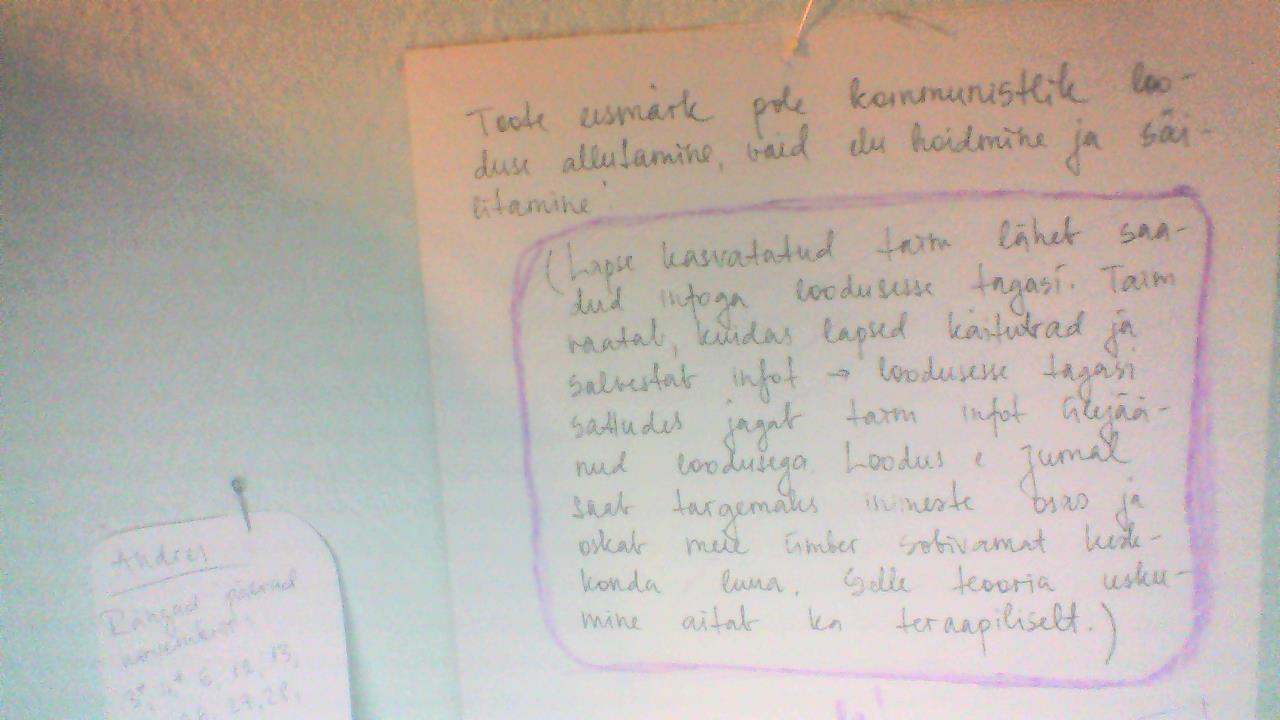 Toote eesmärk pole kommunistlik loo-
duse allutamine, vaid elu hoidmine ja säi-
litamine!
(Lapse kasvatatud taim läheb saa-
dud infoga loodusesse tagasi. Taim
vaatab, kuidas lapsed käituvad ja
salvestab infot → loodusesse tagasi
sattudes jagab taim infot ülejää-
nud loodusega. Loodus e jumal
saab targemaks inimeste osas ja
oskab meie ümber sobivamat kesk-
konda luua. Selle teooria usku-
mine aitab ka teraapiliselt.)
Andres
Rängad päevad
novembris:
3*, 4* 6, 12, 13,
27, 28,